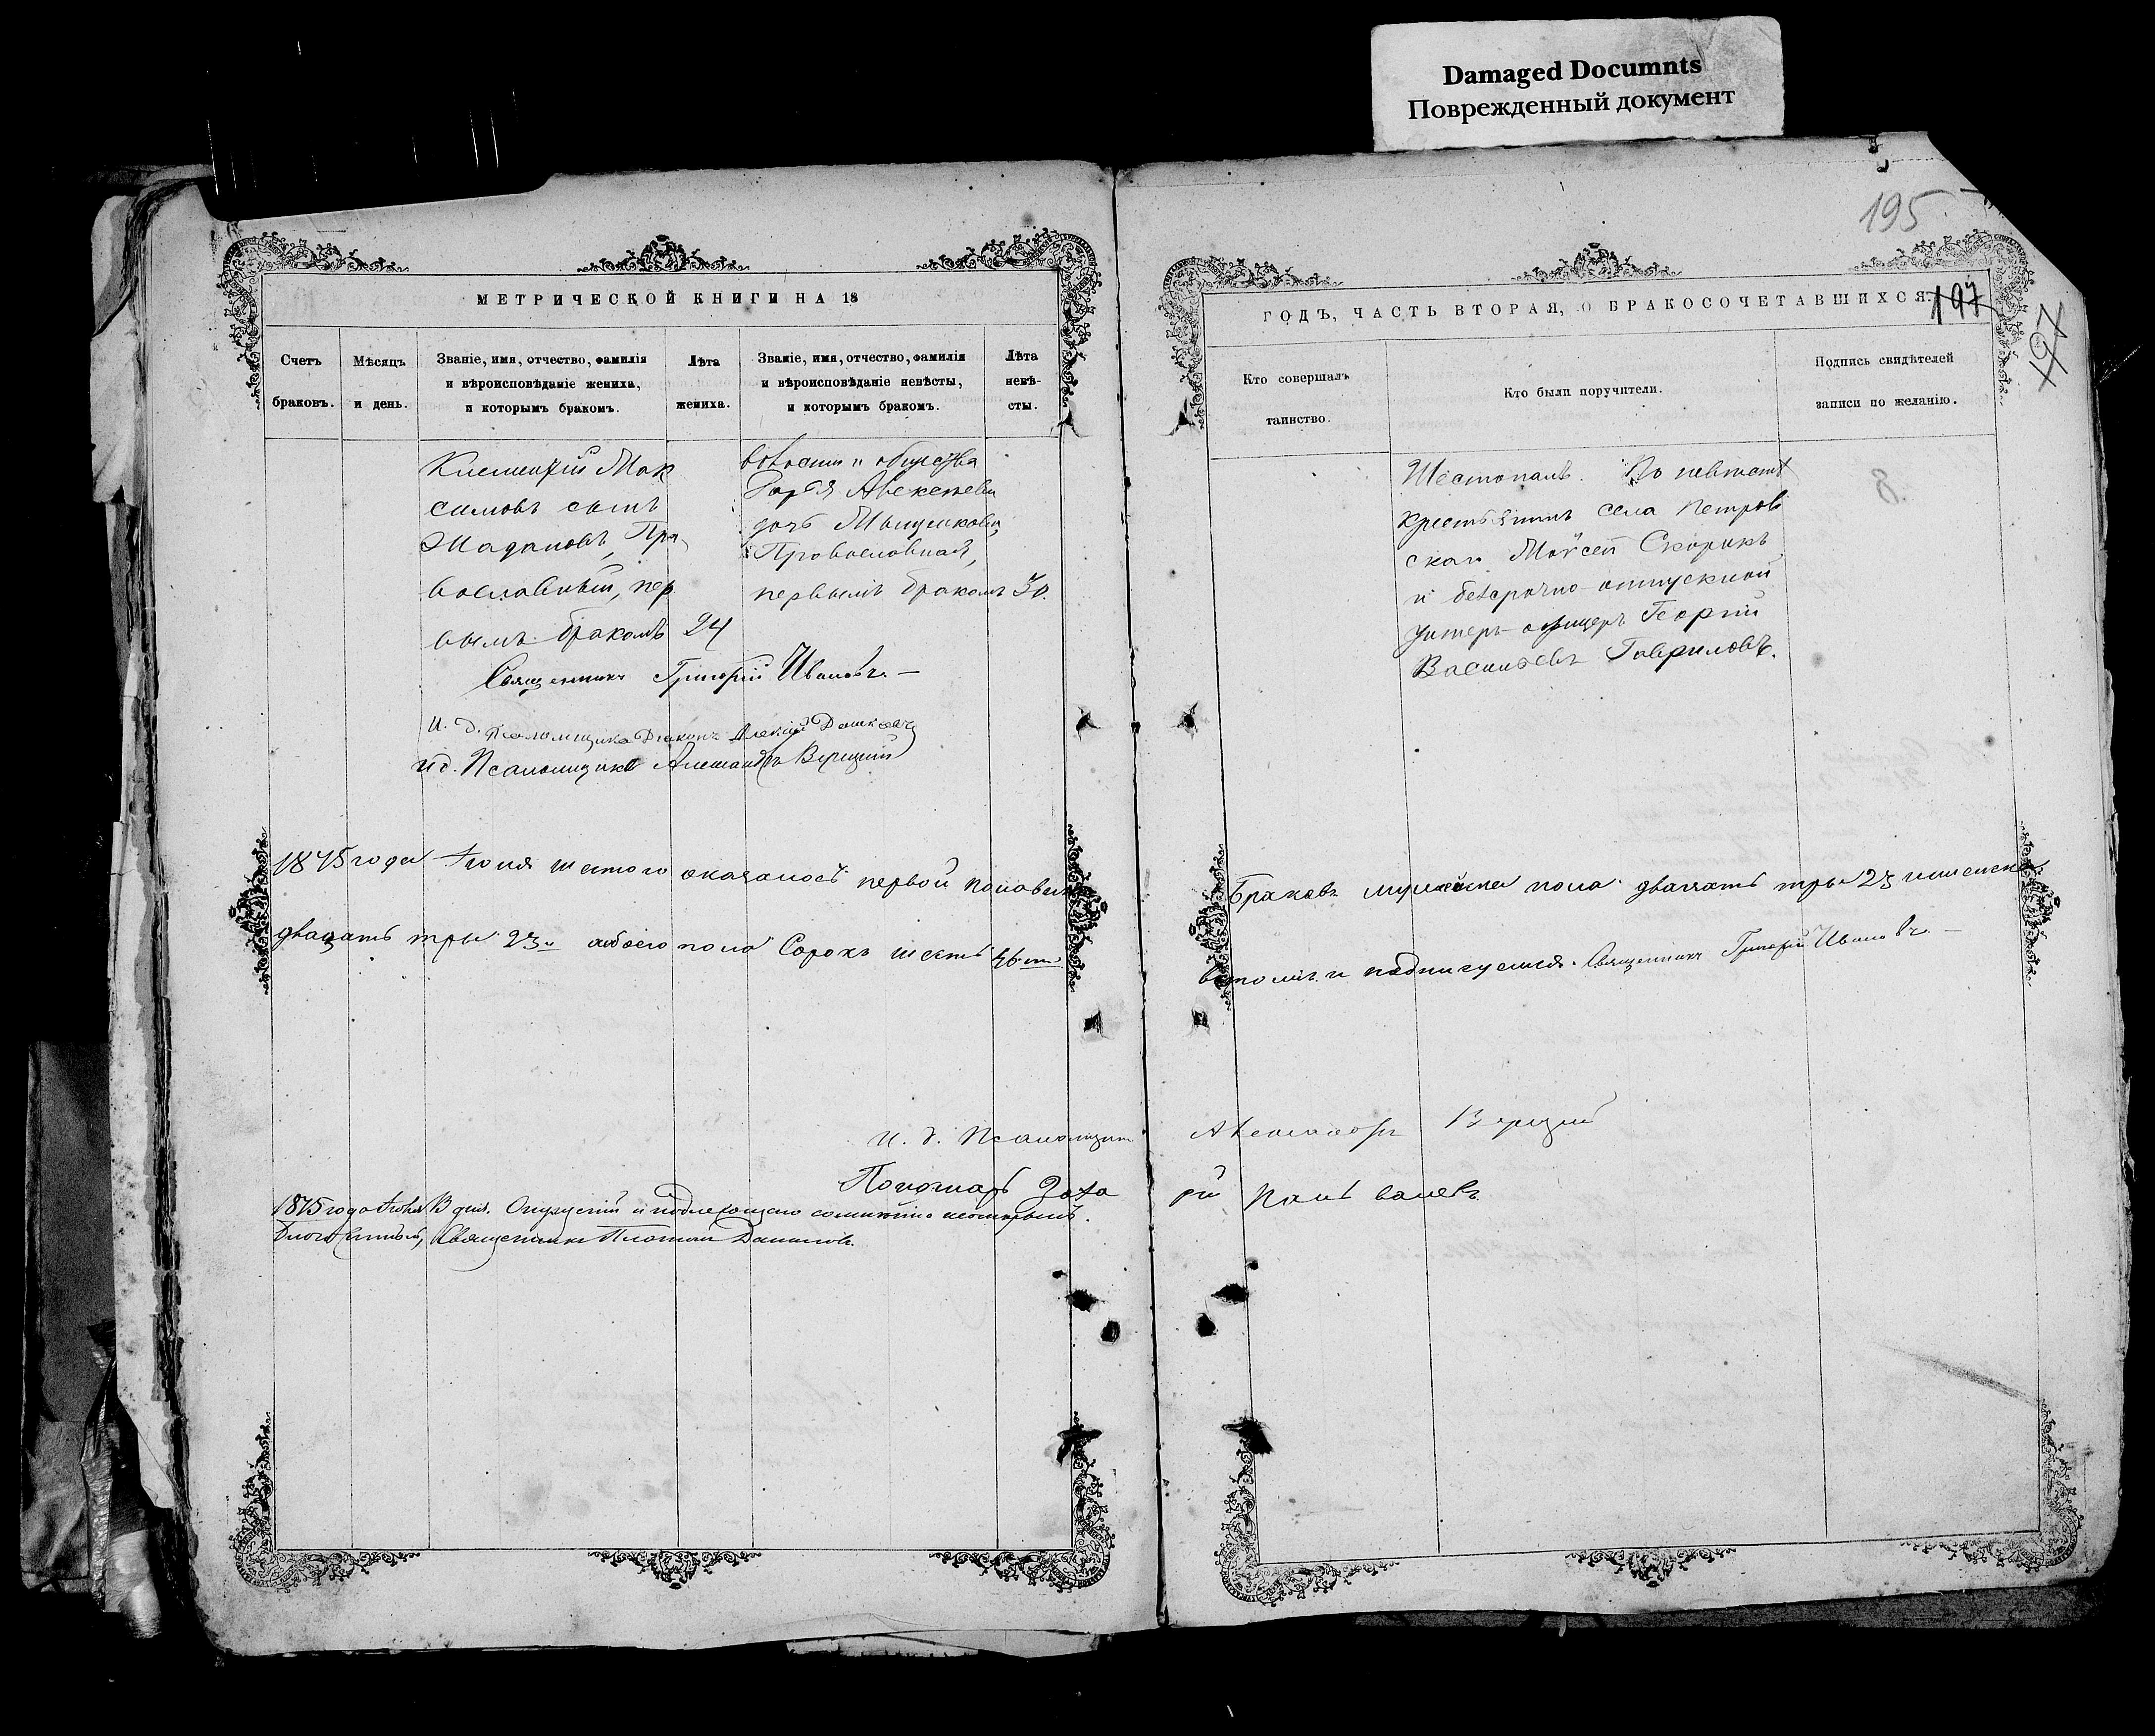 Damaged Documnts
Поврежденный документ
195
197
197
МЕТРИЧЕСКОЙ КНИГИ НА 18
Счетъ браковъ.
Мѣсяцъ и день.
Званіе, имя, отчество, фамилія и вѣроисповѣданіе жениха, и которымъ бракомъ.
Лѣта жениха.
Званіе, имя, отчество, фамилія и вѣроисповѣданіе невѣсты, и которымъ бракомъ.
Лѣта невѣ-сты.
Мак
симовъ сынъ
Пра
вославный, пер
вымъ бракомъ 24
волости и общества
дочь
Православная,
первымъ бракомъ 30.
Священникъ Григорій Ивановъ. —
и. д. Псаломщика Діаконъ Алексій Дашкевичъ
и д. Псаломщика Александръ Верецкій
1875 года Іюня шестого оказалось первой половин
двадцать три 23 обоего пола Сорокъ шесть 46
и. д. Псаломщик
Пономарь Заха
1875 года Іюня 8 дня. Опущеній и подлежащаго сомнѣнію
Благочинный, Священникъ Платонъ Даниловъ.
ГОДЪ, ЧАСТЬ ВТОРАЯ, О БРАКОСОЧЕТАВШИХСЯ.
Кто совершалъ таинство.
Кто были поручители.
Подпись свидѣтелей записи по желанію.
Шестопалъ. По невѣстѣ
крестьянинъ села Петров
скаго Моѵсей Скорикъ
и безсрочно-отпускной
унтеръ-офицеръ Георгій
Васильевъ Гавриловъ.
Браковъ мужеска пола двадцать три 23 женска
въ томъ и подпишемся. Священникъ Григорій Ивановъ. —
Александръ Верецкій
рій